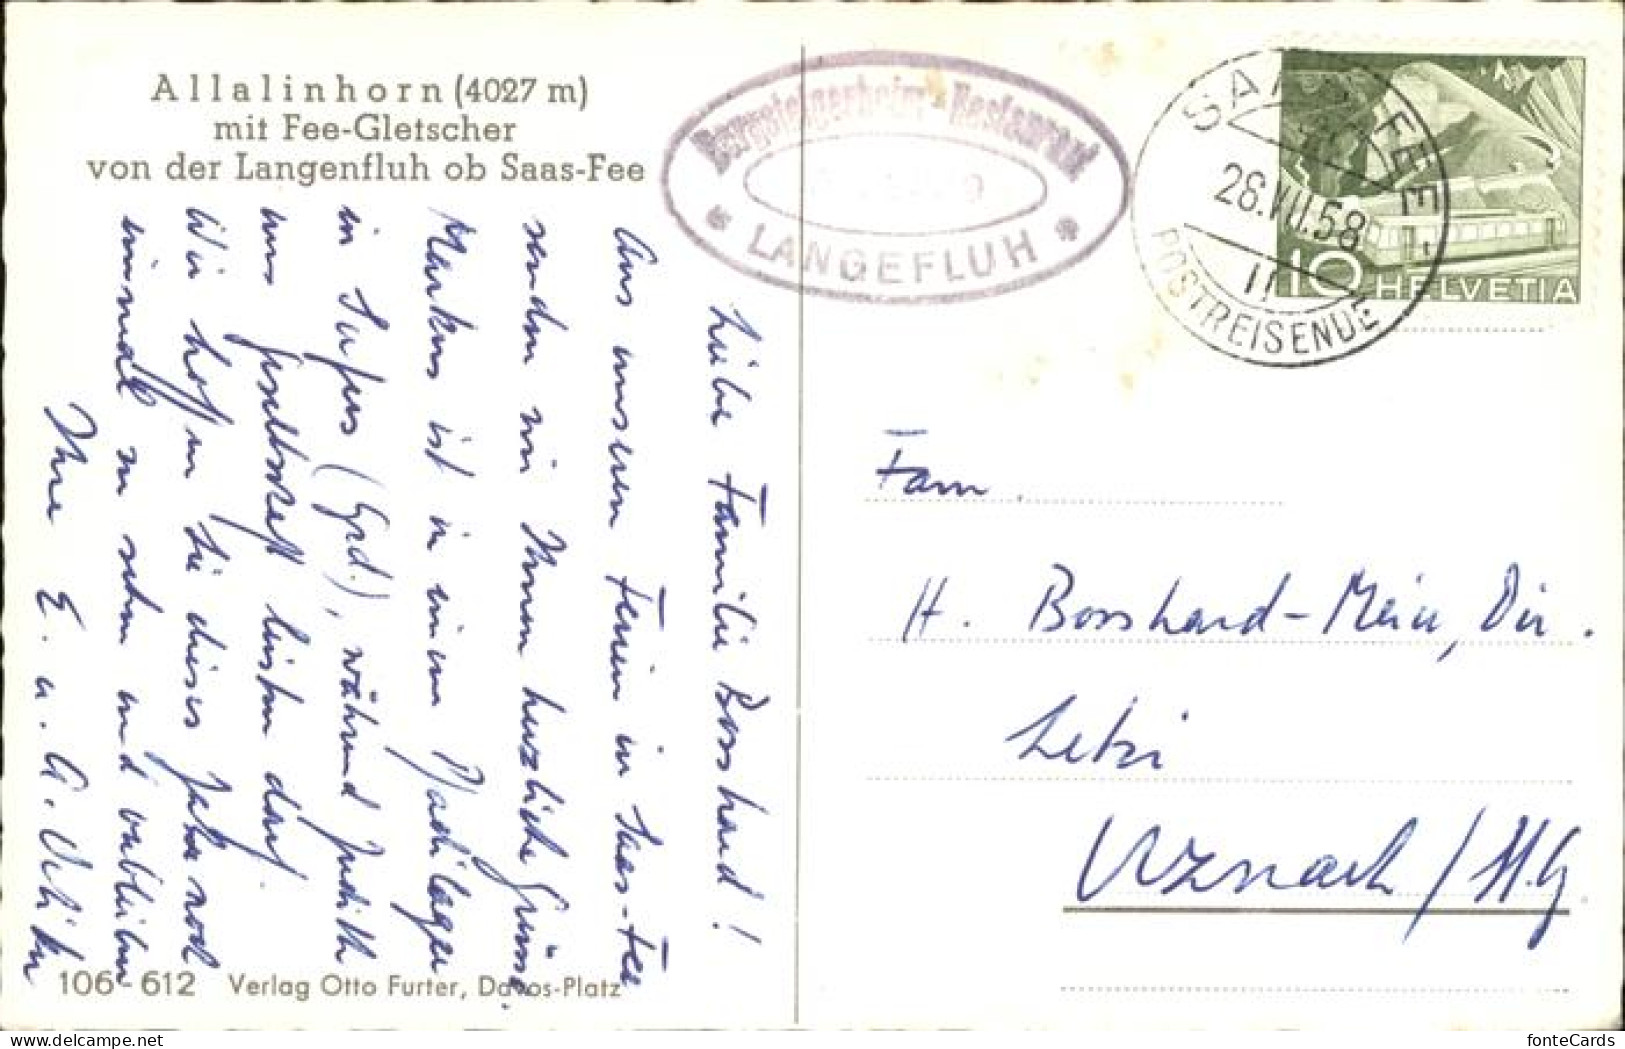 Allalinhorn (4027 m)
mit Fee-Gletscher
von der Langenfluh ob Saas-Fee
Bergsteigerheim-Restaurant
* LANGEFLUH *
SAAS-FEE
26.VII.58
II
POSTREISENDE
10 HELVETIA
Liebe Familie Bosshard!
Aus unseren Ferien in Saas-Fee
senden wir Ihnen herzliche Grüsse.
Markus ist in einem Pfadilager
in Sufers (Grb.), während Judith
uns Gesellschaft leisten darf.
Wir hoffen Sie dieses Jahr noch
einmal zu sehen und verbleiben
Ihre E. u. A.
Fam.
H. Bosshard-Meier, Dir.
Letzi
Uznach / St. G
106-612 Verlag Otto Furter, Davos-Platz
fonteCards